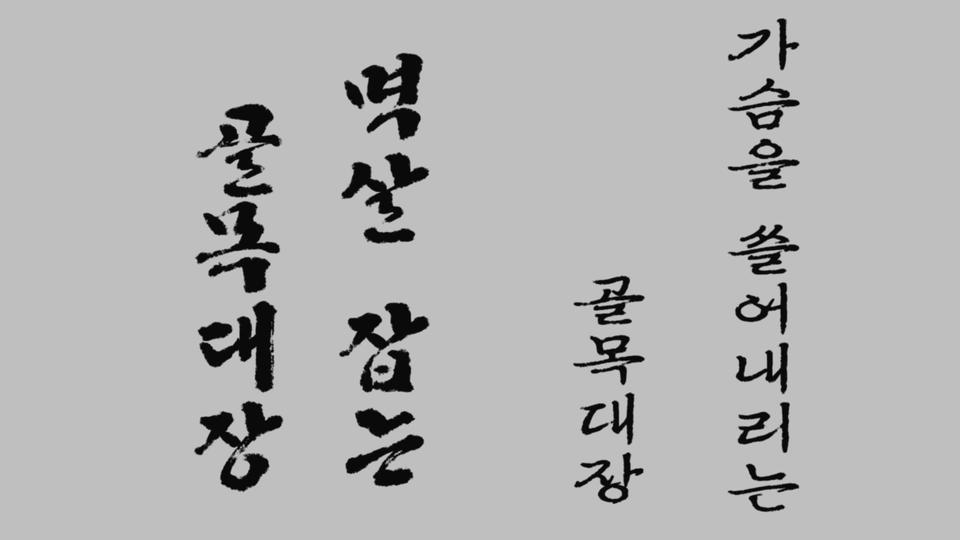 가슴을 쓸어내리는
골목대장
멱살 잡는
골목대장